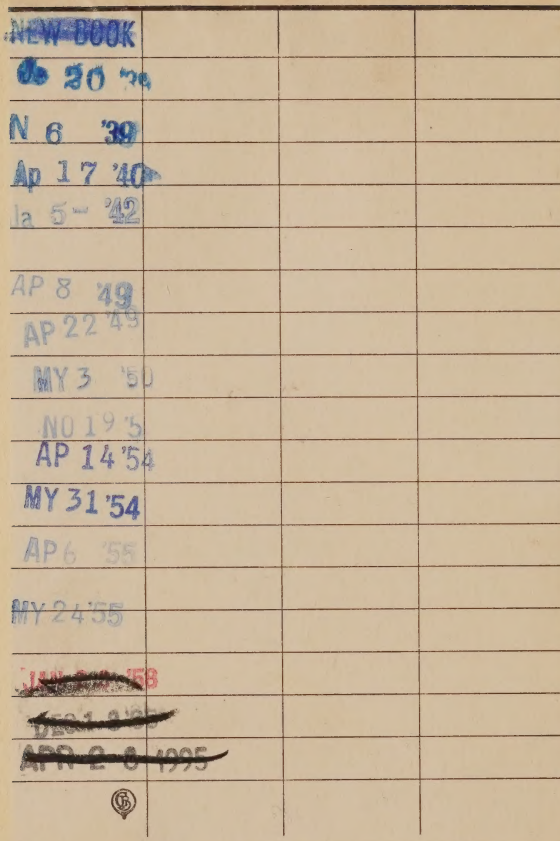 NEW BOOK
20
N 6 '39
Ap 17 '40
Ja 5- '42
AP 8 '49
AP 22 '49
MY 3 '50
NO 19 '5
AP 14 '54
MY 31 '54
AP 6 '55
MY 24 '55
JAN '58
DEC 1
APR 2 6 1995